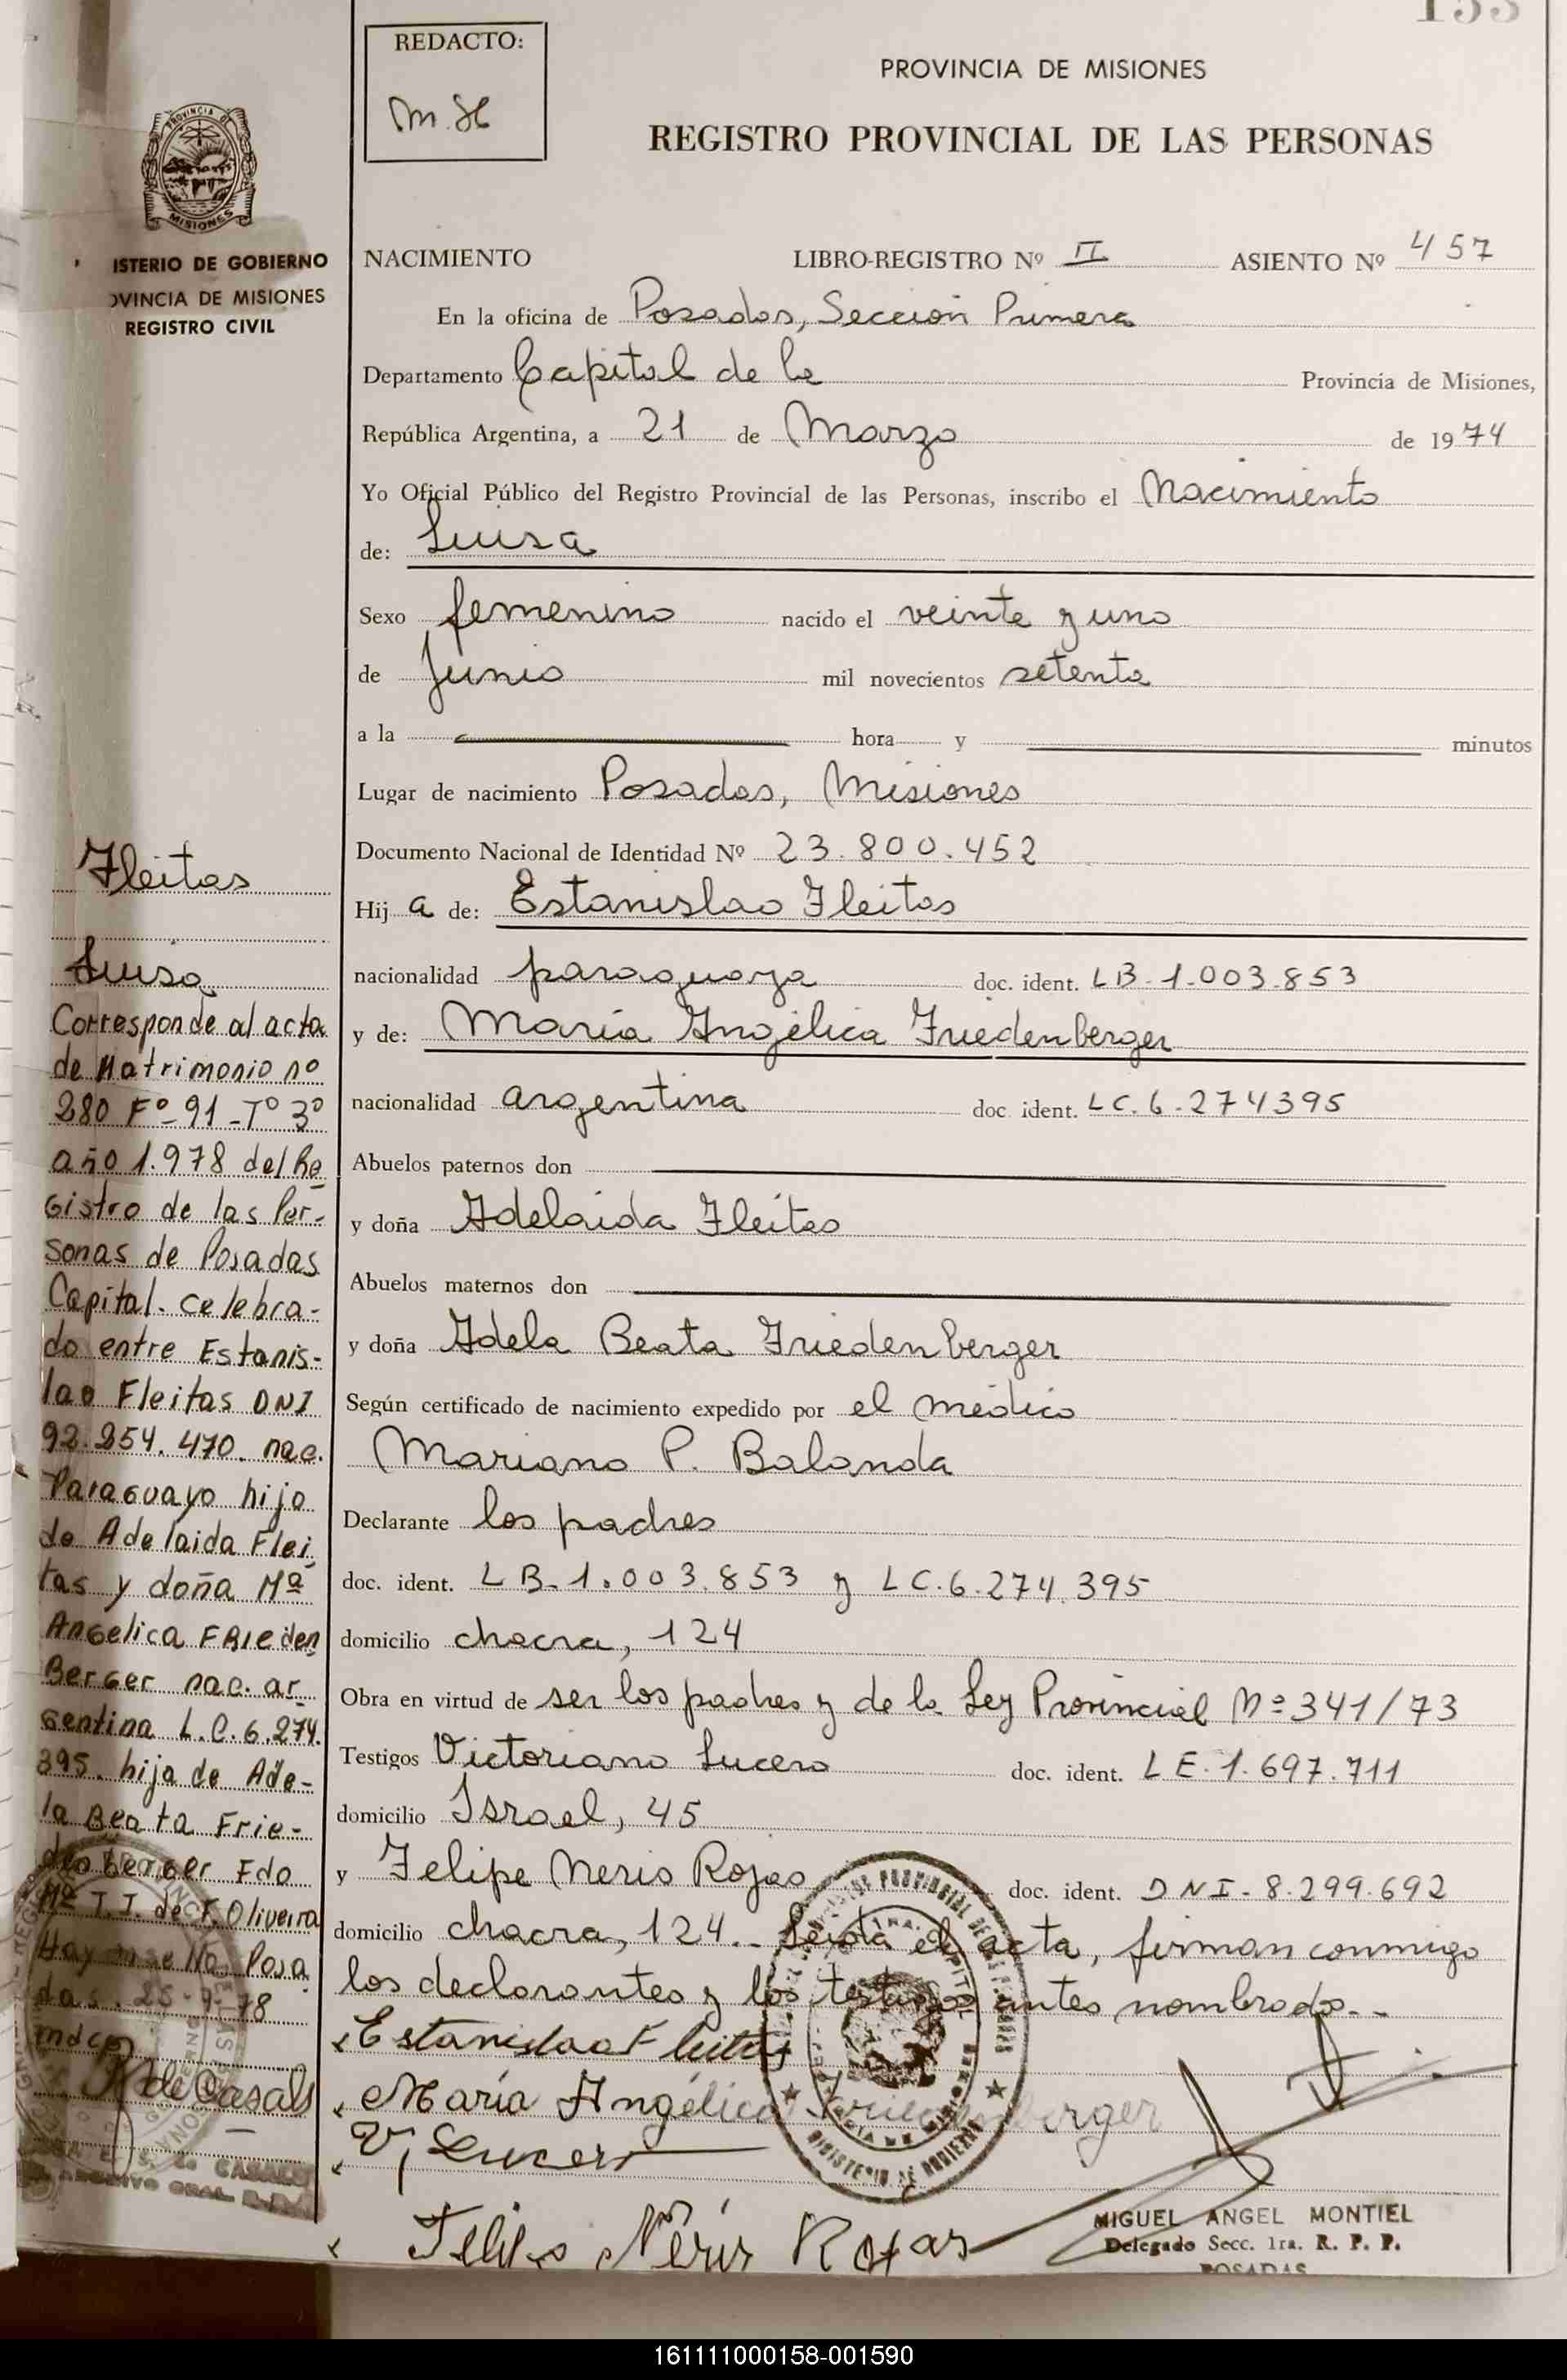 153
REDACTO:
M. H
PROVINCIA DE MISIONES
REGISTRO PROVINCIAL DE LAS PERSONAS
PROVINCIA DE
MISIONES
ISTERIO DE GOBIERNO
OVINCIA DE MISIONES
REGISTRO CIVIL
NACIMIENTO LIBRO-REGISTRO Nº II ASIENTO Nº 457
En la oficina de Posadas, Sección Primera
Departamento Capital de la Provincia de Misiones,
República Argentina, a 21 de Marzo de 1974
Yo Oficial Público del Registro Provincial de las Personas, inscribo el Nacimiento
de: Luisa
Sexo femenino nacido el veinte y uno
de Junio mil novecientos setenta
a la hora y minutos
Lugar de nacimiento Posadas, Misiones
Documento Nacional de Identidad Nº 23.800.452
Hij a de: Estanislao Fleitas
nacionalidad paraguaya doc. ident. LB-1.003.853
y de: María Angélica Friedenberger
nacionalidad argentina doc. ident. LC.6.274395
Abuelos paternos don
y doña Adelaida Fleitas
Abuelos maternos don
y doña Adela Beata Friedenberger
Según certificado de nacimiento expedido por el médico
Mariano P. Balanda
Declarante los padres
doc. ident. LB.1.003.853 y LC.6.274.395
domicilio chacra, 124
Obra en virtud de ser los padres y de la Ley Provincial Nº 341/73
Testigos Victoriano Lucero doc. ident. LE.1.697.711
domicilio Israel, 45
y Felipe Neris Rojas doc. ident. DNI-8.299.692
domicilio chacra, 124.- Leída el acta, firman conmigo
los declarantes y los testigos antes nombrados.-
Estanislao Fleitas
María Angélica Friedenberger
V, Lucero
Felipe Néris Rojas
MIGUEL ANGEL MONTIEL
Delegado Secc. 1ra. R. P. P.
POSADAS
Fleitas
Luisa
Corresponde al acta
de Matrimonio nº
280 Fº-91-Tº 3º
año 1.978 del Re
gistro de las Per-
sonas de Posadas
Capital. celebra-
do entre Estanis-
lao Fleitas DNI
92.254.470. nac.
Paraguayo hijo
de Adelaida Flei
tas y doña Mª
Angelica Frieden
Berger nac. ar
gentina L.C.6.274.
395. hija de Ade-
la Beata Frie-
den Berger Fdo
Mª T.I. de F. Oliveira
Hay un se No. Posa
das. 25-9-78
mdcp
de Casals
161111000158-001590